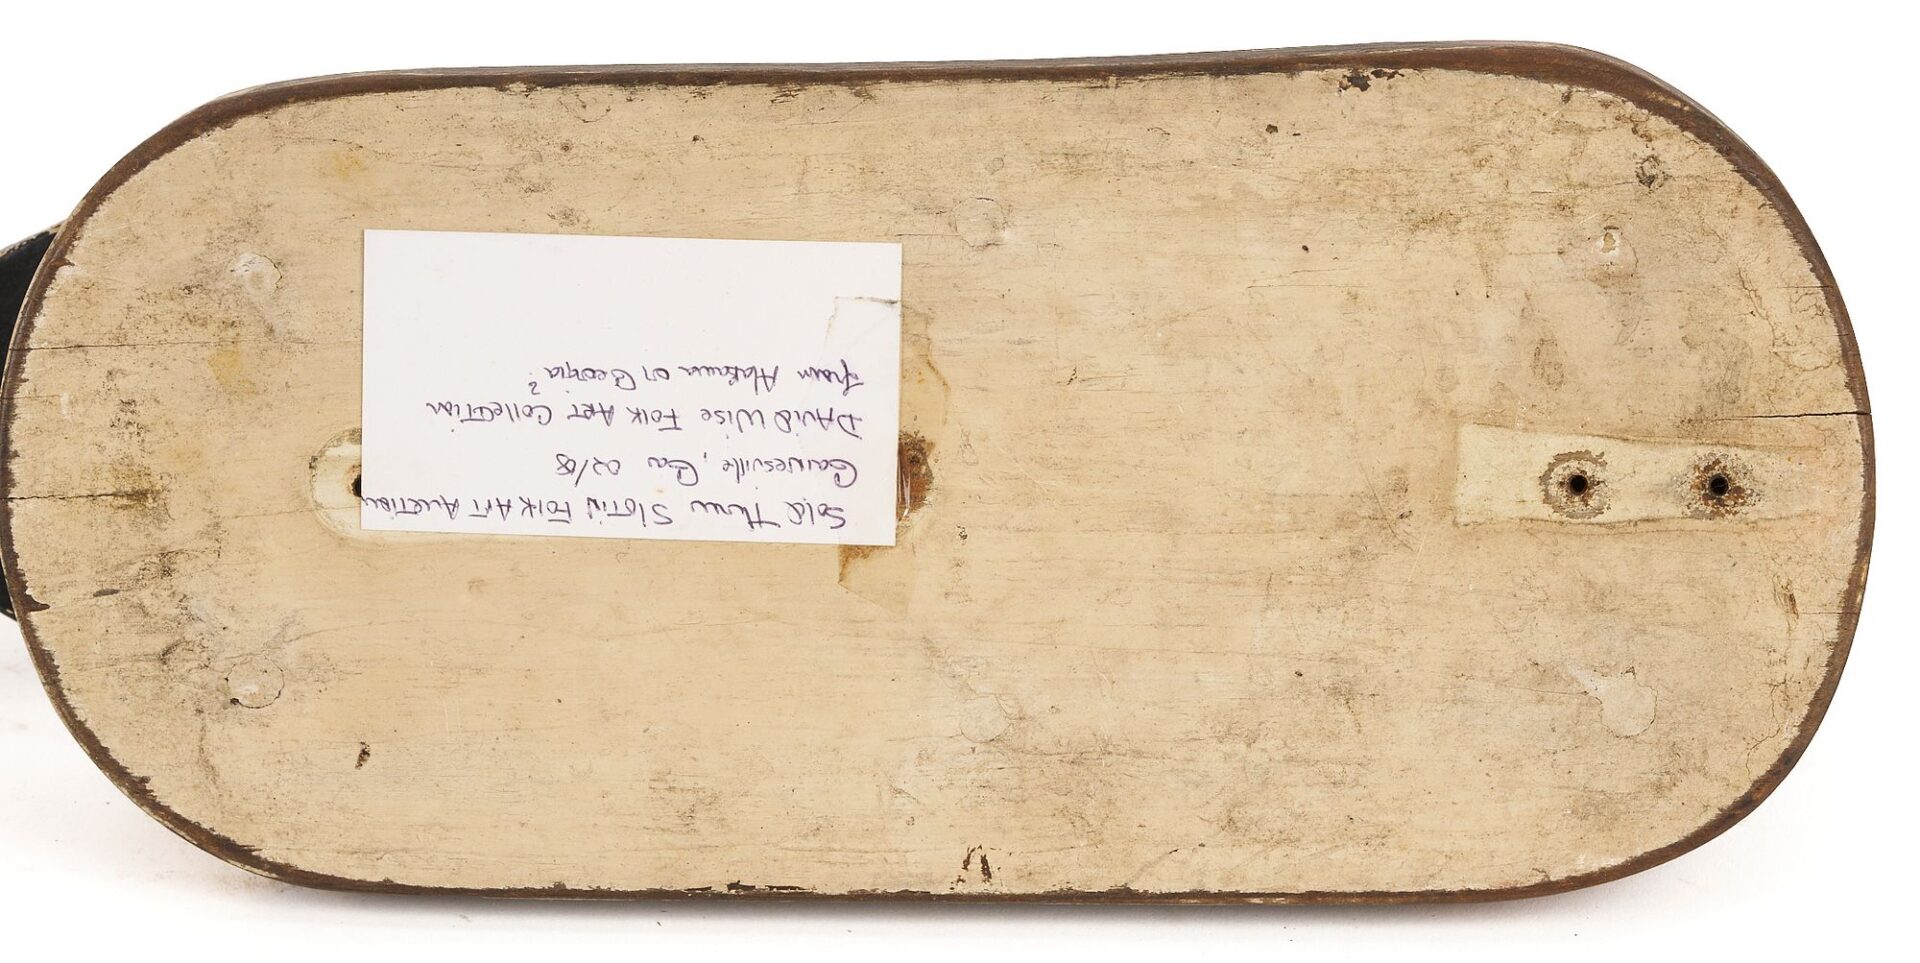 Sold Thru Slotin Folk Art Auction
Gainesville, Ga 02/08
David Wise Folk Art Collection
from Alabama or Georgia?